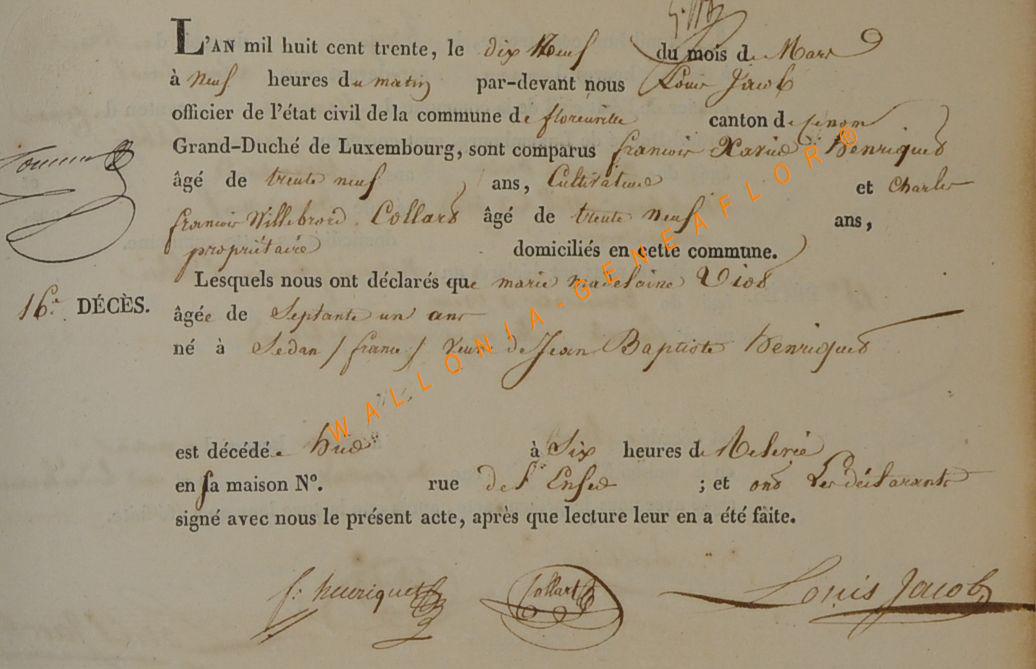 L'AN mil huit cent trente, le dix Neuf du mois de Mars
à Neuf heures du matin par-devant nous Louis Jacob
officier de l'état civil de la commune de florenville canton de
Grand-Duché de Luxembourg, sont comparus francois Xavier Henriquet
âgé de trente neuf ans, Cultivateur et Charles
francois Willebrord Collard âgé de trente Neuf ans,
propriétaire domiciliés en cette commune.
Lesquels nous ont déclarés que marie madelaine
16e DÉCÈS. âgée de Septante un ans
né à Sedan / france / Veuve de Jean Baptiste Henriquet
est décédée hier à Six heures de Relevée
en sa maison N°. rue de l'Enfer ; et ont Les déclarants
signé avec nous le présent acte, après que lecture leur en a été faite.
f. henriquet Collart Louis Jacob
WALLONIA-GENEAFLOR©